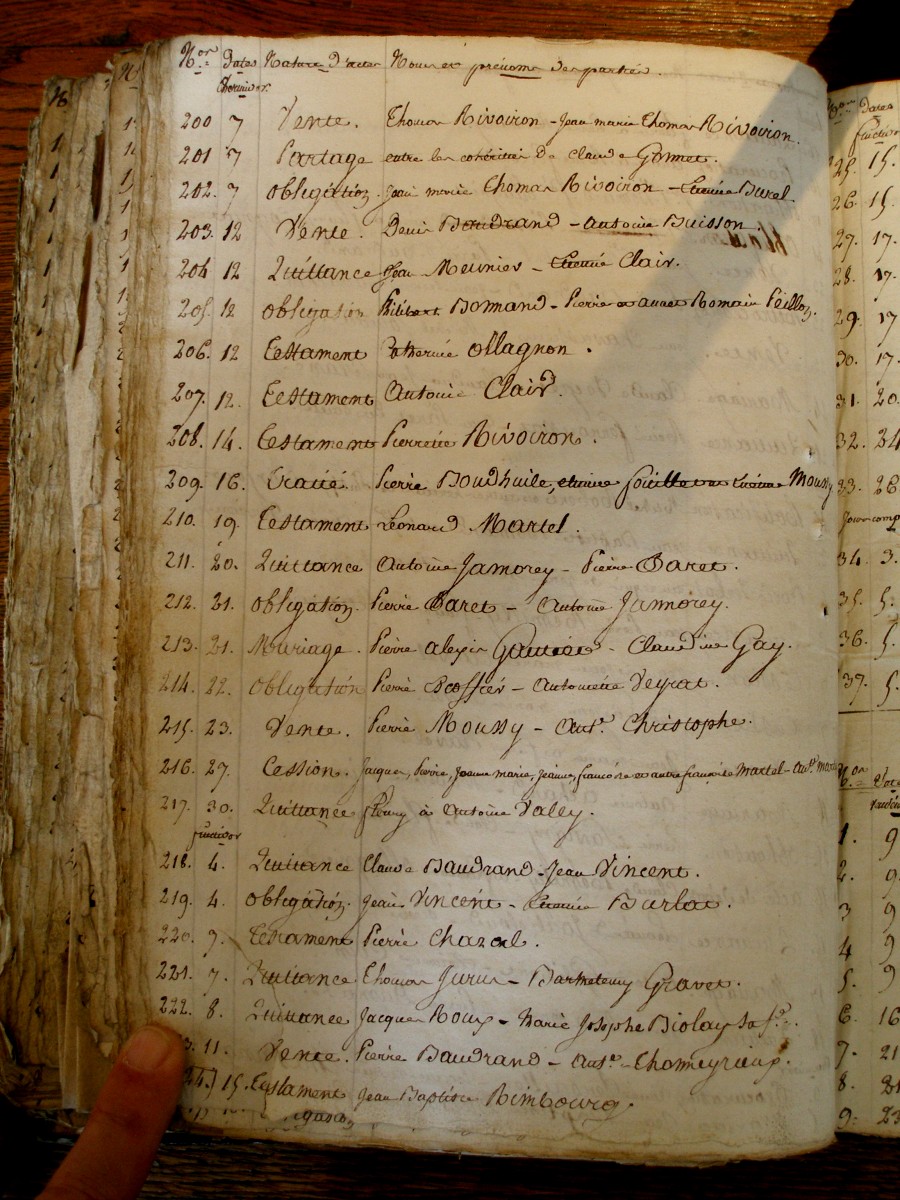 Nor= Dates Nature d'actes Noms et prénoms des parties.
thermidor
200 7 Vente. Thomas Rivoiron - Jean marie Thomas Rivoiron.
201 7 Partage entre les cohéritiers De Claude Gonnet.
202. 7 Obligation. Jean marie Thomas Rivoiron - Etienne Burel.
203. 12 Vente. Denis Baudrand - Antoine Buisson.
204 12 Quittance Jean Meunier - Etienne Clair.
205. 12 Obligation Philibert Bomand - Pierre et autres Romain Peillon.
206. 12 Testament Catherine Ollagnon.
207. 12. Testament Antoine Clair.
208. 14. Testament Pierrette Rivoiron.
209. 16. Traité. Pierre Boudhuile, Moussy
210. 19. Testament Léonard Martel.
211. 20. Quittance Antoine Jamorey - Pierre Baret.
212. 21. Obligation. Pierre Baret - Antoine Jamorey.
213. 21. Mariage. Pierre alexis - Claudine Gay.
214. 22. Obligation Pierre - Antoinette Veyrat.
215. 23. Vente. Pierre Moussy - Ant.e Christophe.
216. 27. Cession. Jacques, Pierre, Jeanne marie, Jeanne, francoise et autre francoise Martel - Ant.e
217. 30. Quittance fleury à Antoine Valey.
fructidor
218. 4. Quittance Claude Baudrand - Jean Vincent.
219. 4. Obligation. Jean Vincent - Etienne Burlat.
220. 7. Testament Pierre Chazal.
221. 7. Quittance Thomas Jurus - Barthelemy Gravet.
222. 8. Quittance Jacques Roux - Marie Josephe Biolay sa f.e.
3. 11. Vente. Pierre Baudrand - Ant.e Chomeyrieux.
24. 15. Testament Jean Baptiste Rimbourg.
Dates
fructidor
25. 15.
26. 15.
27. 17.
28. 17.
29. 17
30. 17.
31. 20.
32. 24
33. 26
Jour comp
34. 3.
35. 5.
36. 5.
37. 5.
1. 9
2. 9
3 9
4 9
5. 9
6. 16
7. 21
8. 21
9. 23